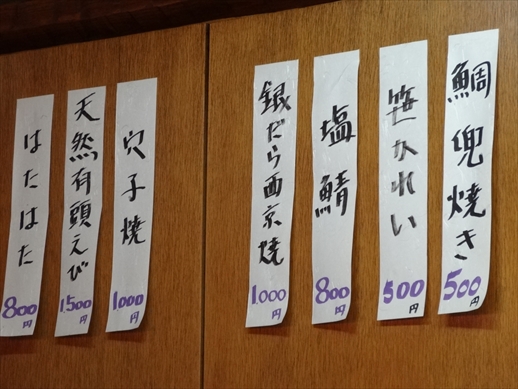 鯛兜焼き
500円
笹かれい
500円
塩鯖
800円
銀だら西京焼
1000円
穴子焼
1000円
天然有頭えび
1500円
はたはた
800円